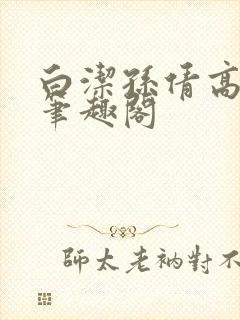 白潔孫倩高
筆趣閣
師太老衲對不